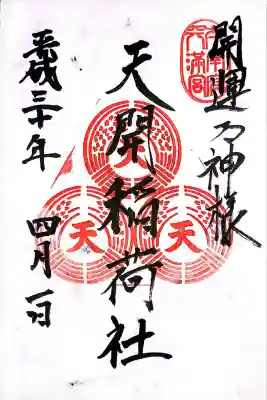 開運乃神様
天満宮
天開稲荷社
天
天
平成三十年 四月一日